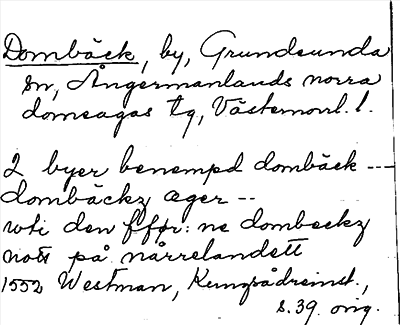 Dombäck, by, Grundsunda
sn, Ångermanlands norra
domsagas tg, Västernorrl. l.
2 byer benempd dombäck ---
dombäckz æger --
wti den fför: ne dombeckz
nott på nårrelandett
1552 Westman, Kungsådreinst.,
s. 39. orig.